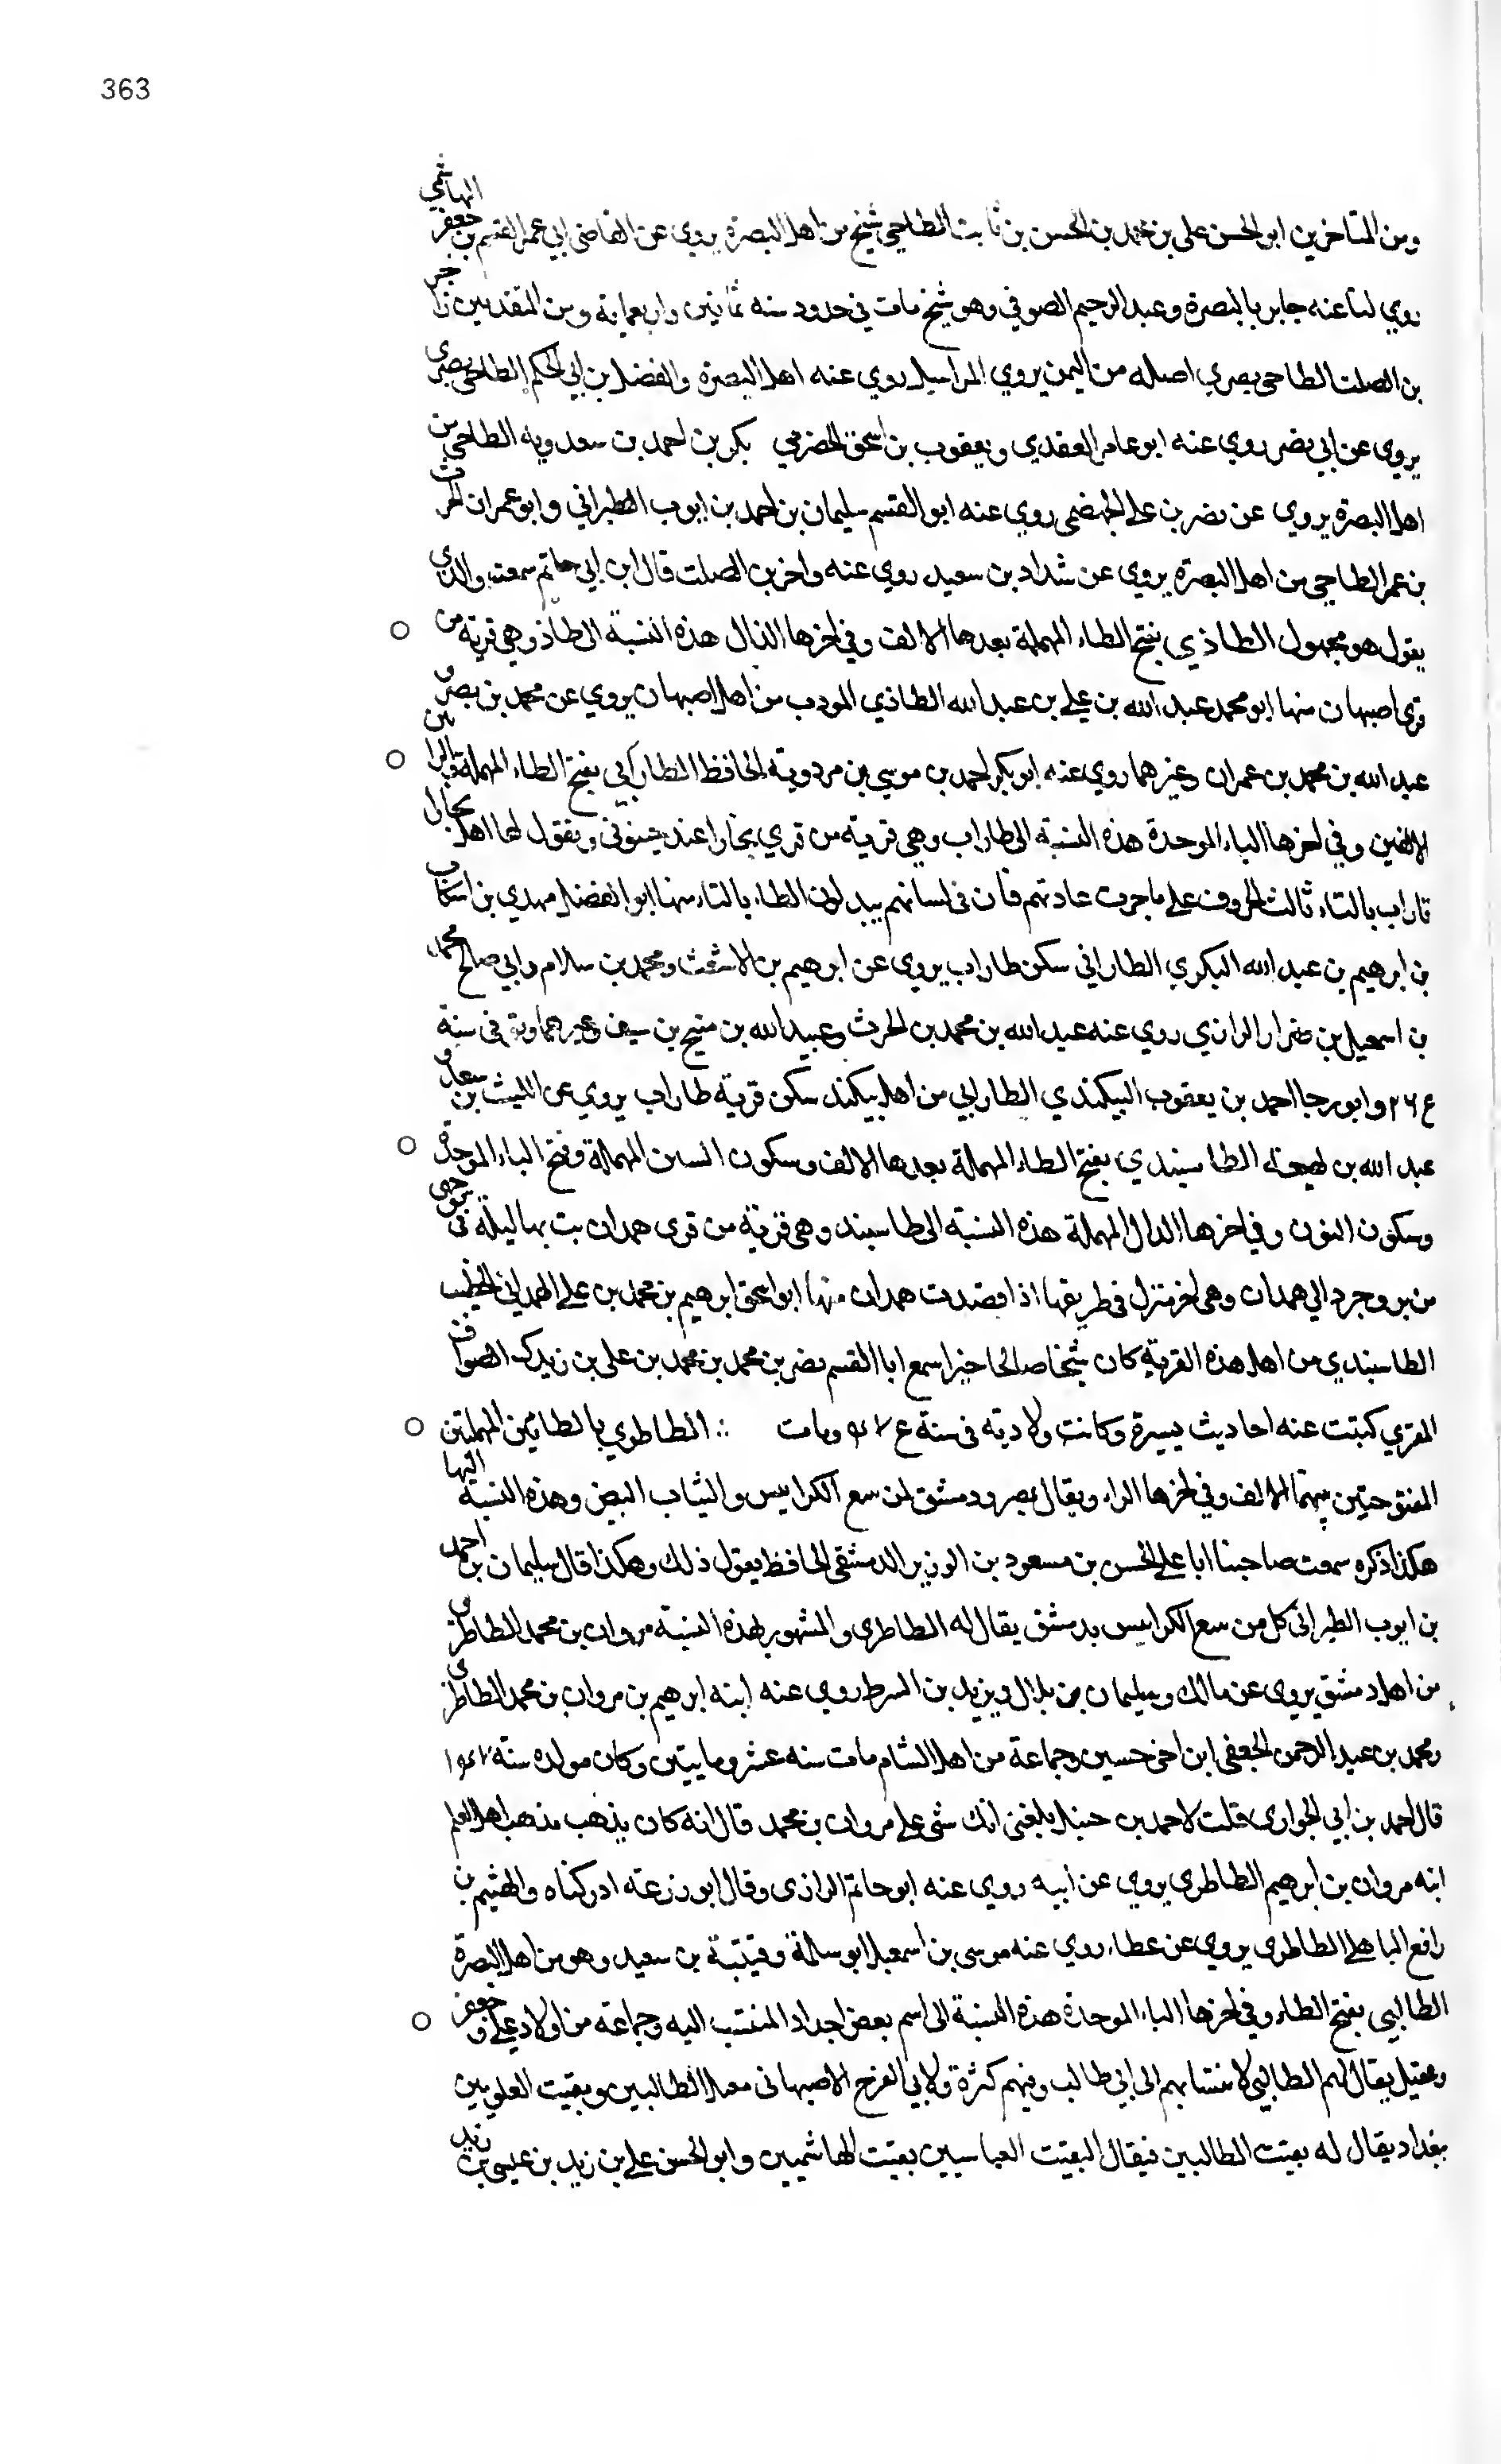 363
ومن المتاخرين ابو الحسن على بن محمد بن الحسن بن ثابت الطاحي شيخ من اهل البصرة يروي عن القاضى ابي عمر القسم بن جعفر الهاشمي
روي لنا عنه جابر بالبصرة وعبد الرحيم الصوفي وهو شيخ مات في حدود سنه ثمانين واربعماية ومن المتقدمين
بن الصلت الطاحى بصري اصله من اليمن يروي المراسيل روي عنه اهل البصرة والفضل بن ابي الحكم الطاحى بصرى
يروى عن ابي نضر روي عنه ابو عامر العقدي ويعقوب بن اسحق الحضرمي بكر بن احمد بن سعدويه الطاحي من
اهل البصرة يروي عن نصر بن على الجهضمى روي عنه ابو القسم سليمان بن احمد بن ايوب الطبراني وابو عمران الحرث
بن عمر الطاحي من اهل البصرة يروي عن شداد بن سعيد روي عنه واخر بن الصلت قال ابن ابي حاتم سمعت والدى
يقول هو مجهول الطاذي بفتح الطاء المهملة بعدها الالف وفي اخرها الذال هذه النسبة الى طاذ وهي قرية من
قرى اصبهان منها ابو محمد عبد الله بن علي بن عبد الله الطاذي المودب من اهل اصبهان يروي عن محمد بن نصر و
عبد الله بن محمد بن عمران وغيرهما روي عنه ابو بكر احمد بن موسي بن مردوية الحافظ الطارابي بفتح الطاء المهملة والرا بين
الالفين وفي اخرها الباء الموحدة هذه النسبة الى طاراب وهي قرية من قري بخارا عند خنبونى ويقول لها اهل بخارا
تاراب بالتاء ثالث الحروف على ما جرت عادتهم فان فى لسانهم يبدلون الطاء بالتاء منها ابو الفضل مهدي بن اسكاب
بن ابرهيم بن عبد الله البكري الطارابى سكن طاراب يروى عن ابرهيم بن الاشعث ومحمد بن سلام وابي صالح محمد
بن اسمعيل بن ضرار الرازي روي عنه عبد الله بن محمد بن الحرث وعبيد الله بن منيح بن سيف وغيرهما وتوفى سنة
ع٢٦ وابو رجا احمد بن يعقوب البيكندي الطارابي من اهل بيكند سكن قرية طاراب يروي عن الليث بن سعد و
عبد الله بن لهيعة الطاسبندي بفتح الطاء المهملة بعدها الالف وسكون السين المهملة وفتح الباء الموحدة
وسكون النون وفي اخرها الدال المهملة هذه النسبة الى طاسبند وهى قرية من قرى همدان بت بها ليلة في توجهى
من بروجرد الي همدان وهى اخر منزل فى طريقها اذا قصدت همدان منها ابو اسحق ابرهيم بن محمد بن على الهمداني الخطيب
الطاسبندي من اهل هذه القرية كان شيخا صالحا خيرا سمع ابا القسم نصر بن محمد بن محمد بن على بن زيرك الصواف
المقري كتبت عنه احاديث يسيرة وكانت ولادته فى سنة ومات : الطاطري بالطاءين المهملتين
المفتوحتين بينهما الالف وفي اخرها الراء ويقال بمصر ودمشق لمن يبيع الكرابيس والثياب البيض وهذه النسبة اليها
هكذا ذكره سمعت صاحبنا ابا على الحسن بن مسعود بن الوزير الدمشقى الحافظ يقول ذلك وهكذا قال سليمان بن احمد
بن ايوب الطبرانى كل من يبيع الكرابيس بدمشق يقال له الطاطرى والمشهور بهذه النسبة مروان بن محمد الطاطرى
من اهل دمشق يروى عن مالك وسليمان بن بلال ويزيد بن السمط روى عنه ابنه ابرهيم بن مروان بن محمد الطاطرى
ومحمد بن عبد الرحمن الجعفى ابن اخى حسين وجماعة من اهل الشام مات سنه عشر ومايتين وكان مولده سنة
قال احمد بن ابي الحوارى قلت لاحمد بن حنبل بلغنى انك تثنى على مروان بن محمد قال انه كان يذهب مذهب اهل العلم
ابنه مروان بن ابرهيم الطاطري يروي عن ابيه روي عنه ابو حاتم الرازى وقال ابو زرعة ادركناه والهثيم بن
رافع الباهلى الطاطري يروي عن عطاء روي عنه موسى بن اسمعيل ابو سلمة وقتيبة بن سعيد وهو من اهل البصرة
الطالبي بفتح الطاء وفي اخرها الباء الموحدة هذه النسبة الى اسم بعض اجداد المنتسب اليه وجماعة من اولاد علي وجعفر
وعقيل يقال لهم الطالبي لانتسابهم الى ابي طالب وفيهم كثرة ولابي الفرج الاصبهانى الطالبين ونقيب العلويين
ببغداد يقال له نقيب الطالبين فيقال النقيب العباسيين نقيب الهاشميين وابو الحسن على بن زيد بن عيسى بن زيد